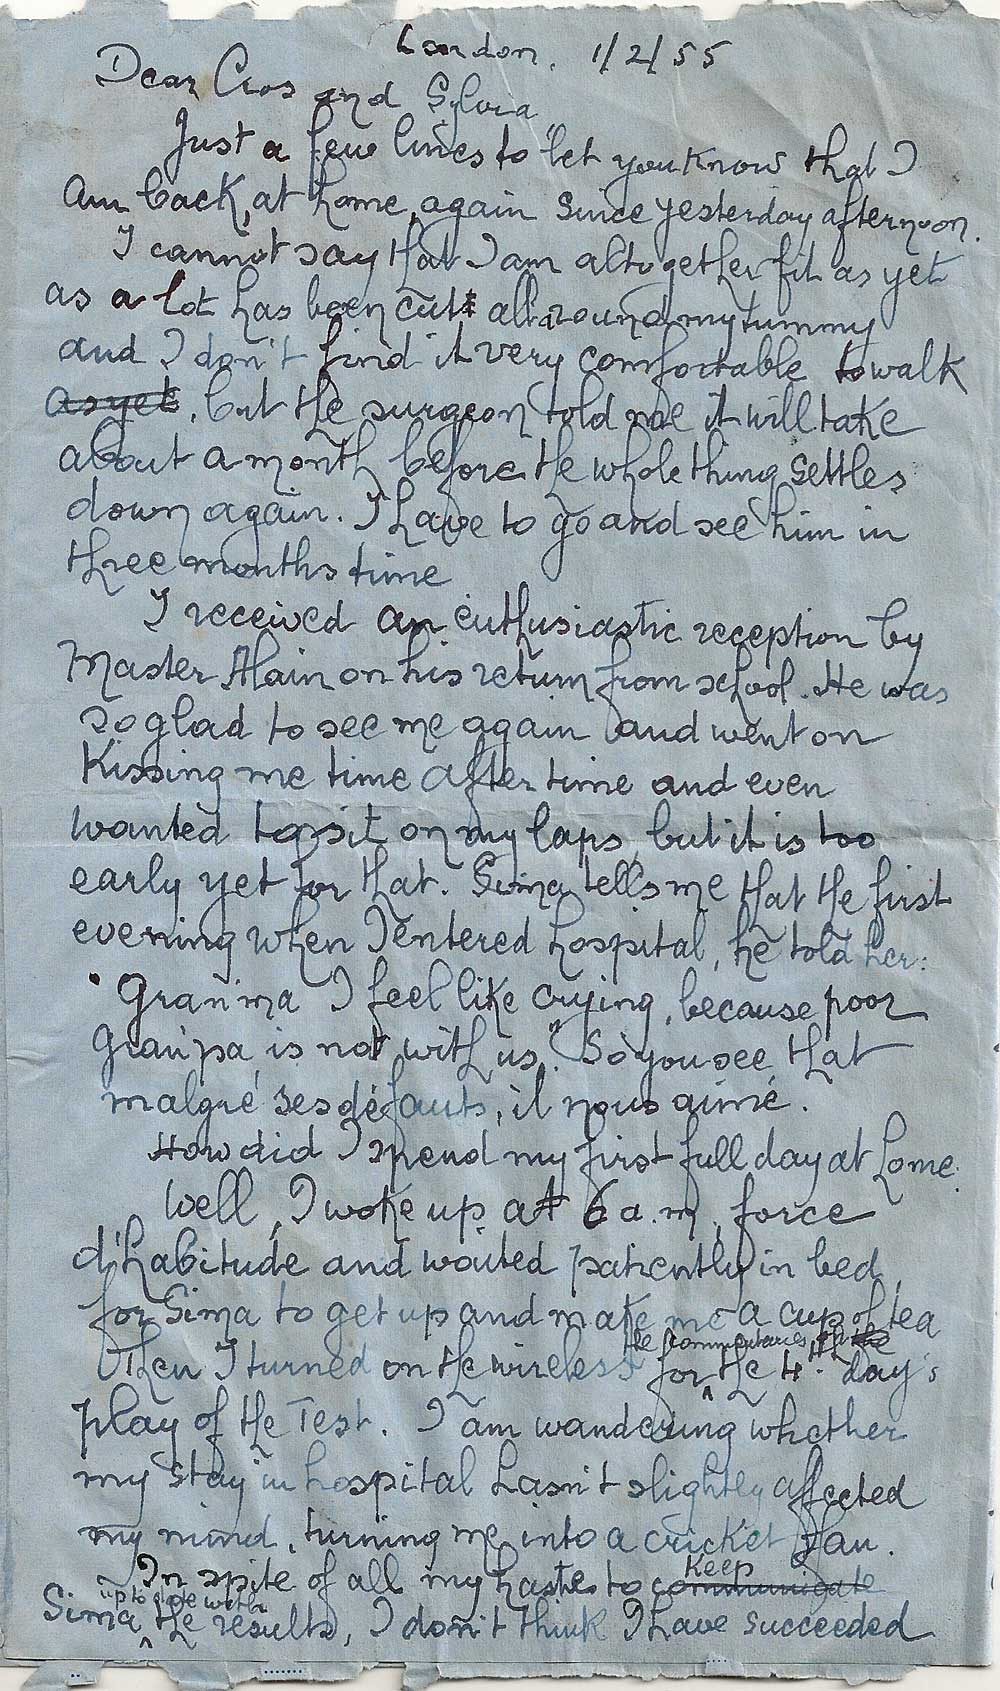 London. 1/2/55
Dear Cros and Sylvia
Just a few lines to let you know that I
am back, at home, again since yesterday afternoon.
I cannot say that I am altogether fit as yet
as a lot has been cut all around my tummy
and I don't find it very comfortable to walk
as yet, but the surgeon told me it will take
about a month before the whole thing settles
down again. I have to go and see him in
three months time
I received an enthusiastic reception by
Master Alain on his return from school. He was
so glad to see me again and went on
Kissing me time after time and even
wanted to sit on my laps, but it is too
early yet for that. Sima tells me that the first
evening when I entered hospital, he told her:
"Gran'ma I feel like crying, because poor
Gran'pa is not with us." So you see, that
malgré ses défauts, il nous aime.
How did I spend my first full day at home.
Well, I woke up at 6 a.m, force
d'habitude and waited patiently in bed,
for Sima to get up and make me a cup of tea
the commentaries of the
Then I turned on the wireless for the 4th day's
play of the Test. I am wandering whether
my stay in hospital hasn't slightly affected
my mind, turning me into a cricket fan.
Keep
In spite of all my hastes to communicate
up to date with
Sima the results, I don't think I have succeeded